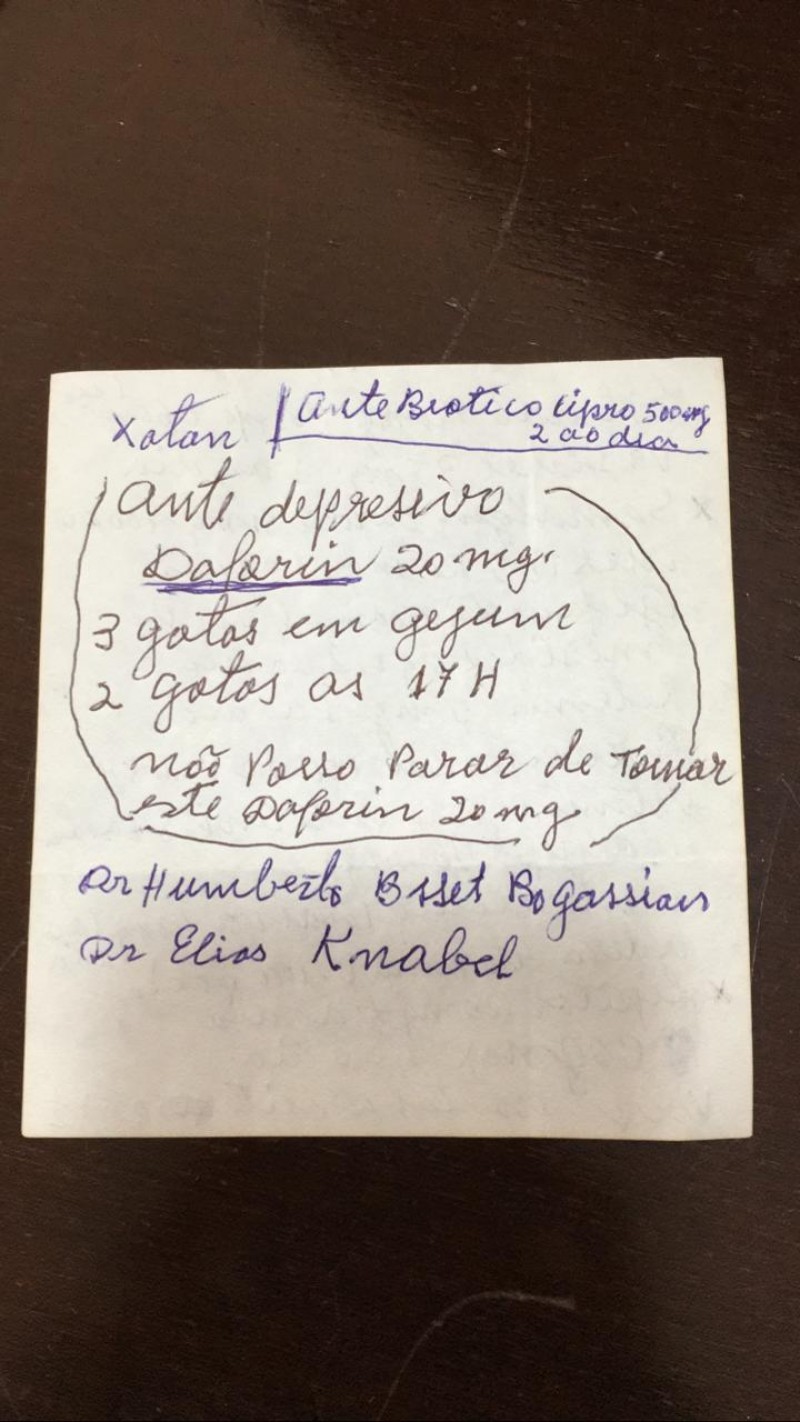 Xatan
Ante Biotico Cipro 500mg
2 ao dia
Ante depresivo
Daforin 20 mg.
3 gotas em gejum
2 gotas as 17 H
não Posso Parar de Tomar
este Daforin 20 mg
Dr Humberto Bogassian
Dr Elias Knabel